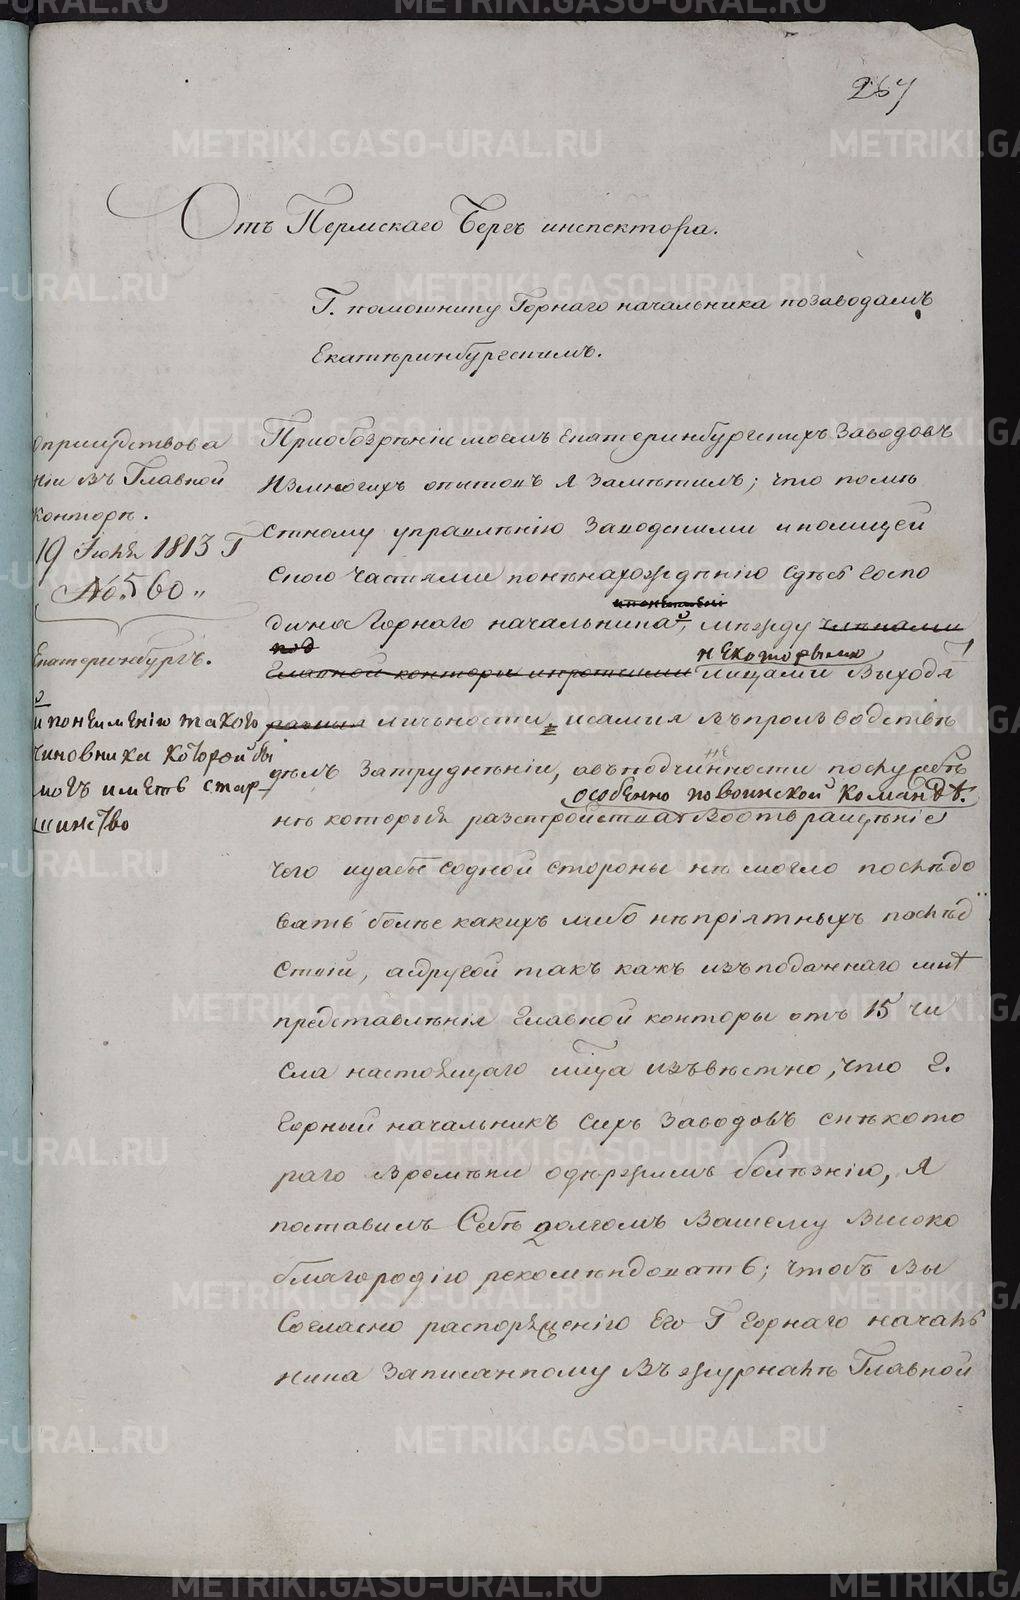 267
Отъ Пермскаго Бергъ инспектора.
Г. помошнику Горнаго начальника позаводамъ
Екатѣринбургскимъ.
Оприсудствова
ніи въ Главной
конторѣ.
19 Июня 1813 Г
№ 560
Екатеринбургъ.
и понеимѣнію таковаго
чиновника которой бы
могъ имѣть стар
шинство
Приобозрѣніи моемъ Екатеринбургскихъ Заводовъ
Измногихъ опытовъ я Замѣтилъ; что помѣ
стному управлѣнію Заводскими иполицей
скою частями понѣнахожденію Сдѣсь Госпо
дина Горнаго начальника, мѣжду членами
некоторыми
Главной конторы ипротчими лицами выходя
разныя личности, исамыя въпроизводствѣ
дѣлъ Затруднѣніи, авъподчиненности послужбѣ
не
особенно повоинской командѣ.
нѣкоторыя разстройства Воотвращѣніе
чего идабы содной стороны нѣ могло послѣдо
вать болѣе какихъ либо нѣпріятныхъ послѣд
ствій, адругой такъ какъ изъподаннаго мнѣ
представлѣнія Главной конторы отъ 15 чи
сла настоящаго мца извѣстно, что г.
Горный начальникъ сихъ Заводовъ снѣкото
раго врѣмѣни одѣржимъ болѣзнію, я
поставилъ Себѣ долгомъ Вашему Высоко
благородію рекомѣндовать; чтобъ вы
Согласно распоряженію Его Г Горнаго началь
ника Записанному Въ журналѣ Главной
METRIKI.GASO-URAL.RU